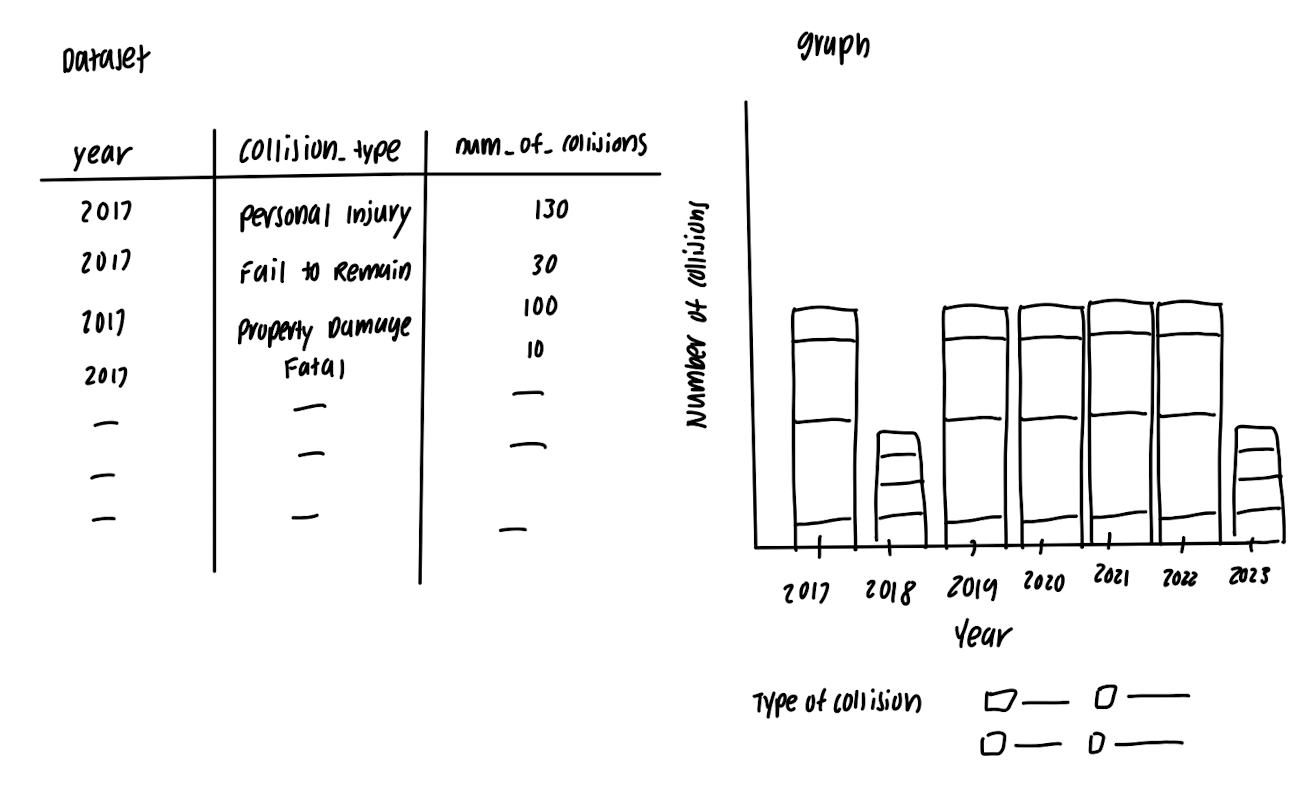 Dataset
year collision_type num_of_collisions
2017 Personal Injury 130
2017 Fail to Remain 30
2017 Property Damage 100
2017 Fatal 10
graph
Number of collisions
2017 2018 2019 2020 2021 2022 2023
Year
Type of collision